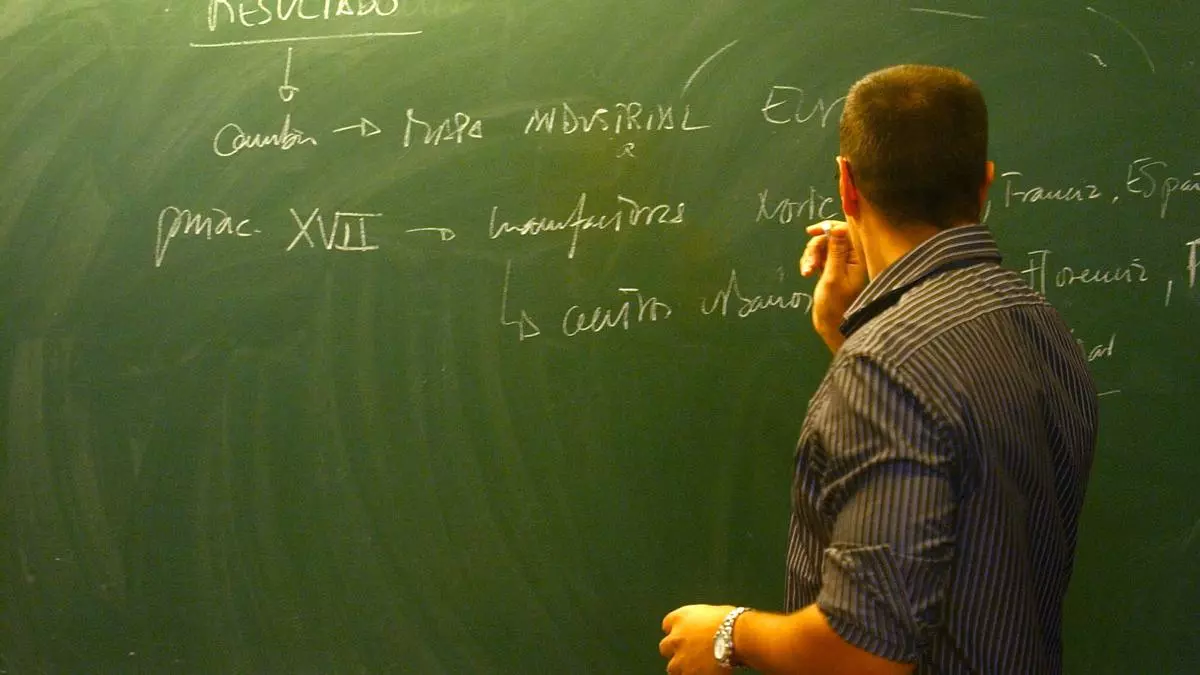 RESULTADO
Cambio → MAPA INDUSTRIAL EUR
XVII → manufactureras Norte Francia, Españ
↳ centros urbanos Florencia,